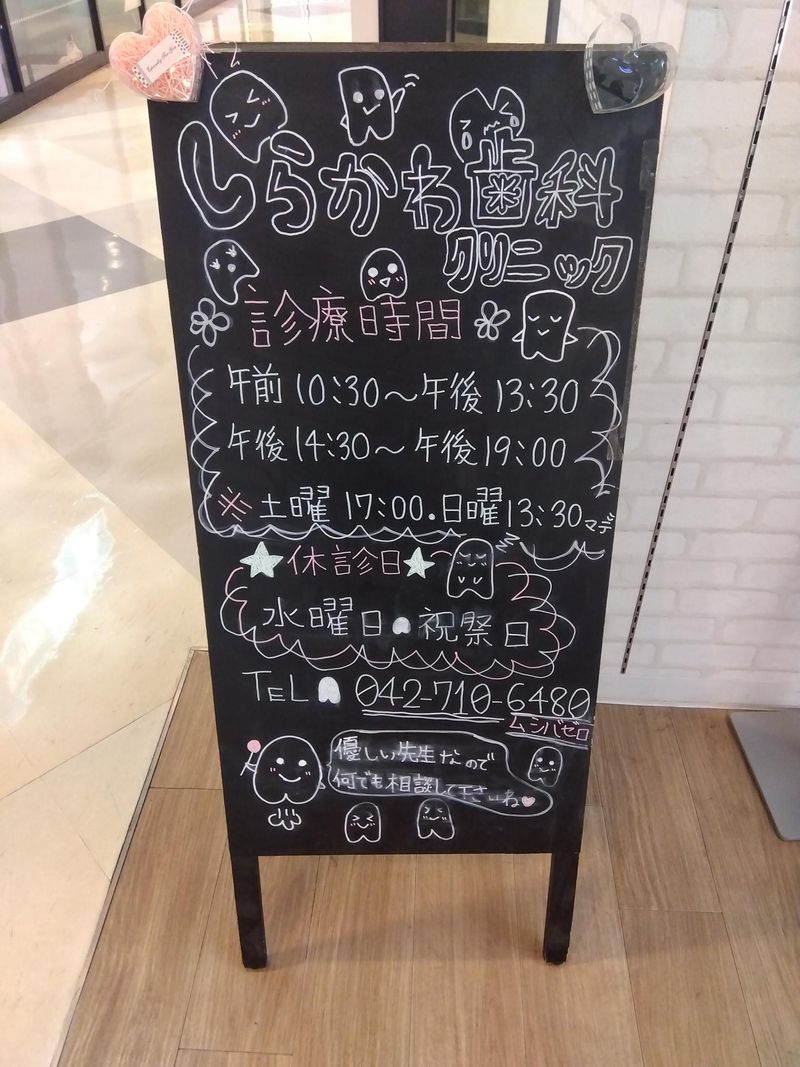 しらかわ歯科
クリニック
診療時間
午前10:30〜午後13:30
午後14:30〜午後19:00
※土曜17:00.日曜13:30マデ
休診日
水曜日 祝祭日
TEL 042-710-6480
ムシバゼロ
優しい先生なので
何でも相談して下さいね